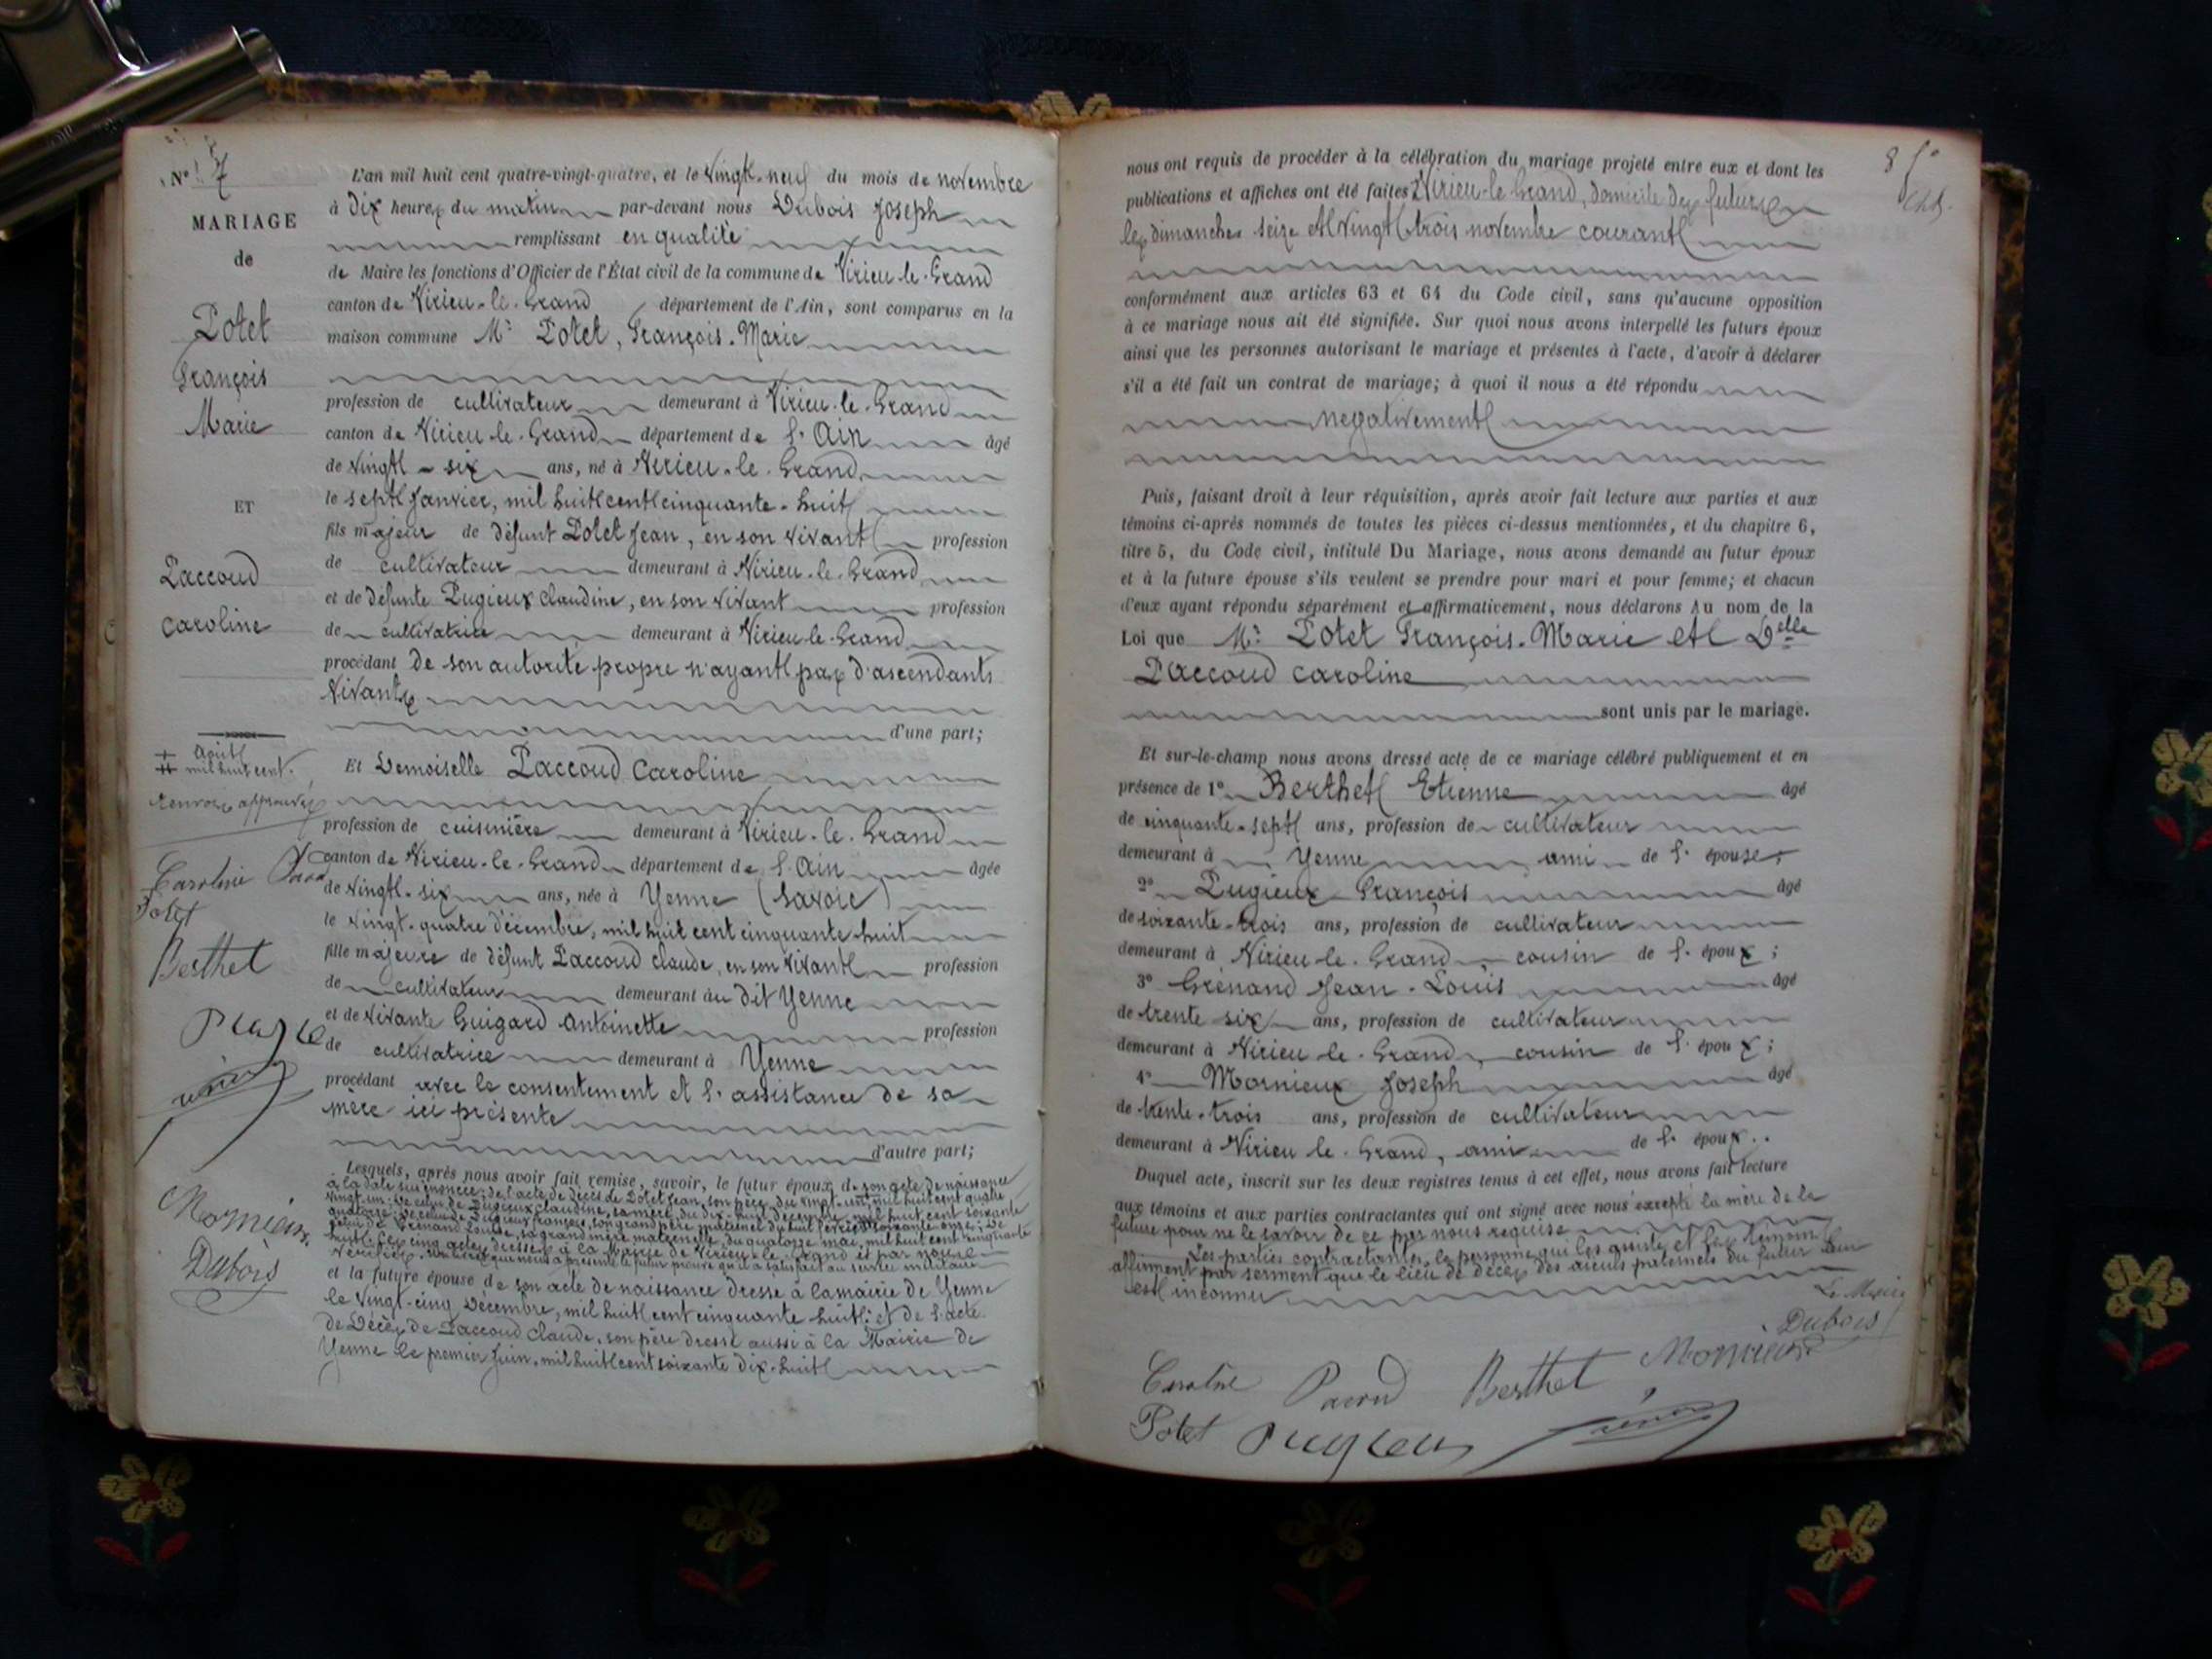 N° 7
MARIAGE
de
Potet
François
Marie
ET
Paccoud
Caroline
+ Août
++ mil huit cent.
renvois approuvés
Caroline Pacc
Potet
Berthet
Monieux
Dubois
L'an mil huit cent quatre-vingt-quatre, et le vingt-neuf du mois de novembre
à dix heures du matin par-devant nous Dubois Joseph
remplissant en qualité
de Maire les fonctions d'Officier de l'État civil de la commune de Virieu-le-Grand
canton de Virieu-le-Grand département de l'Ain, sont comparus en la
maison commune Mr Potet, François-Marie
profession de cultivateur demeurant à Virieu-le-Grand
canton de Virieu-le-Grand département de l'Ain âgé
de vingt-six ans, né à Virieu-le-Grand
le sept janvier, mil huit cent cinquante-huit
fils majeur de défunt Potet Jean, en son vivant profession
de cultivateur demeurant à Virieu-le-Grand
et de défunte Pugieux Claudine, en son vivant profession
de cultivatrice demeurant à Virieu-le-Grand
procédant de son autorité propre n'ayant pas d'ascendants
vivants
d'une part;
Et Demoiselle Paccoud Caroline
profession de cuisinière demeurant à Virieu-le-Grand
canton de Virieu-le-Grand département de l'Ain âgée
de vingt-six ans, née à Yenne (Savoie)
le vingt-quatre décembre, mil huit cent cinquante-huit
fille majeure de défunt Paccoud Claude, en son vivant profession
de cultivateur demeurant au dit Yenne
et de vivante Guigard Antoinette profession
de cultivatrice demeurant à Yenne
procédant avec le consentement et l'assistance de sa
mère ici présente
d'autre part;
Lesquels, après nous avoir fait remise, savoir, le futur époux de son acte de naissance
à la date sus énoncée; de l'acte de décès de Potet Jean, son père, du vingt-un mil huit cent quatre
vingt-un; de celui de Pugieux Claudine, sa mère, du dix-huit décembre, mil huit cent soixante
quatorze; de celui de Pugieux François, son grand père maternel du huit février soixante onze; de
celui de Grénand Louise, sa grand mère maternelle, du quatorze mai, mil huit cent cinquante
huit. Ces cinq actes dressés à la Mairie de Virieu-le-Grand et par nous
vérifiés. qui nous a présenté le futur prouve qu'il a satisfait au service militaire
et la future épouse de son acte de naissance dressé à la mairie de Yenne
le vingt-cinq décembre, mil huit cent cinquante huit; et de l'acte
de Décès de Paccoud Claude, son père dressé aussi à la Mairie de
Yenne le premier juin, mil huit cent soixante dix-huit
8
nous ont requis de procéder à la célébration du mariage projeté entre eux et dont les
publications et affiches ont été faites à Virieu-le-Grand, domicile des futurs
les dimanches seize et vingt trois novembre courant
conformément aux articles 63 et 64 du Code civil, sans qu'aucune opposition
à ce mariage nous ait été signifiée. Sur quoi nous avons interpellé les futurs époux
ainsi que les personnes autorisant le mariage et présentes à l'acte, d'avoir à déclarer
s'il a été fait un contrat de mariage; à quoi il nous a été répondu
négativement
Puis, faisant droit à leur réquisition, après avoir fait lecture aux parties et aux
témoins ci-après nommés de toutes les pièces ci-dessus mentionnées, et du chapitre 6,
titre 5, du Code civil, intitulé Du Mariage, nous avons demandé au futur époux
et à la future épouse s'ils veulent se prendre pour mari et pour femme; et chacun
d'eux ayant répondu séparément et affirmativement, nous déclarons Au nom de la
Loi que Mr Potet François-Marie et Delle
Paccoud Caroline
sont unis par le mariage.
Et sur-le-champ nous avons dressé acte de ce mariage célébré publiquement et en
présence de 1° Berthet Etienne âgé
de cinquante-sept ans, profession de cultivateur
demeurant à Yenne ami de l'épouse;
2° Pugieux François âgé
de soixante-trois ans, profession de cultivateur
demeurant à Virieu-le-Grand cousin de l'époux;
3° Grénand Jean-Louis âgé
de trente six ans, profession de cultivateur
demeurant à Virieu-le-Grand, cousin de l'époux;
4° Mornieux Joseph âgé
de trente-trois ans, profession de cultivateur
demeurant à Virieu le-Grand, ami de l'époux.
Duquel acte, inscrit sur les deux registres tenus à cet effet, nous avons fait lecture
aux témoins et aux parties contractantes qui ont signé avec nous excepté la mère de la
future pour ne le savoir de ce par nous requise
Les parties contractantes, la personne qui les assiste et les témoins
affirment par serment que le lieu de décès des aïeuls paternels du futur leur
est inconnu
Le Maire
Dubois
Caroline Pacoud Berthet Monieux
Potet Pugieux